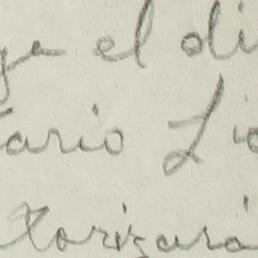 ga el di
tario Lio
torizará